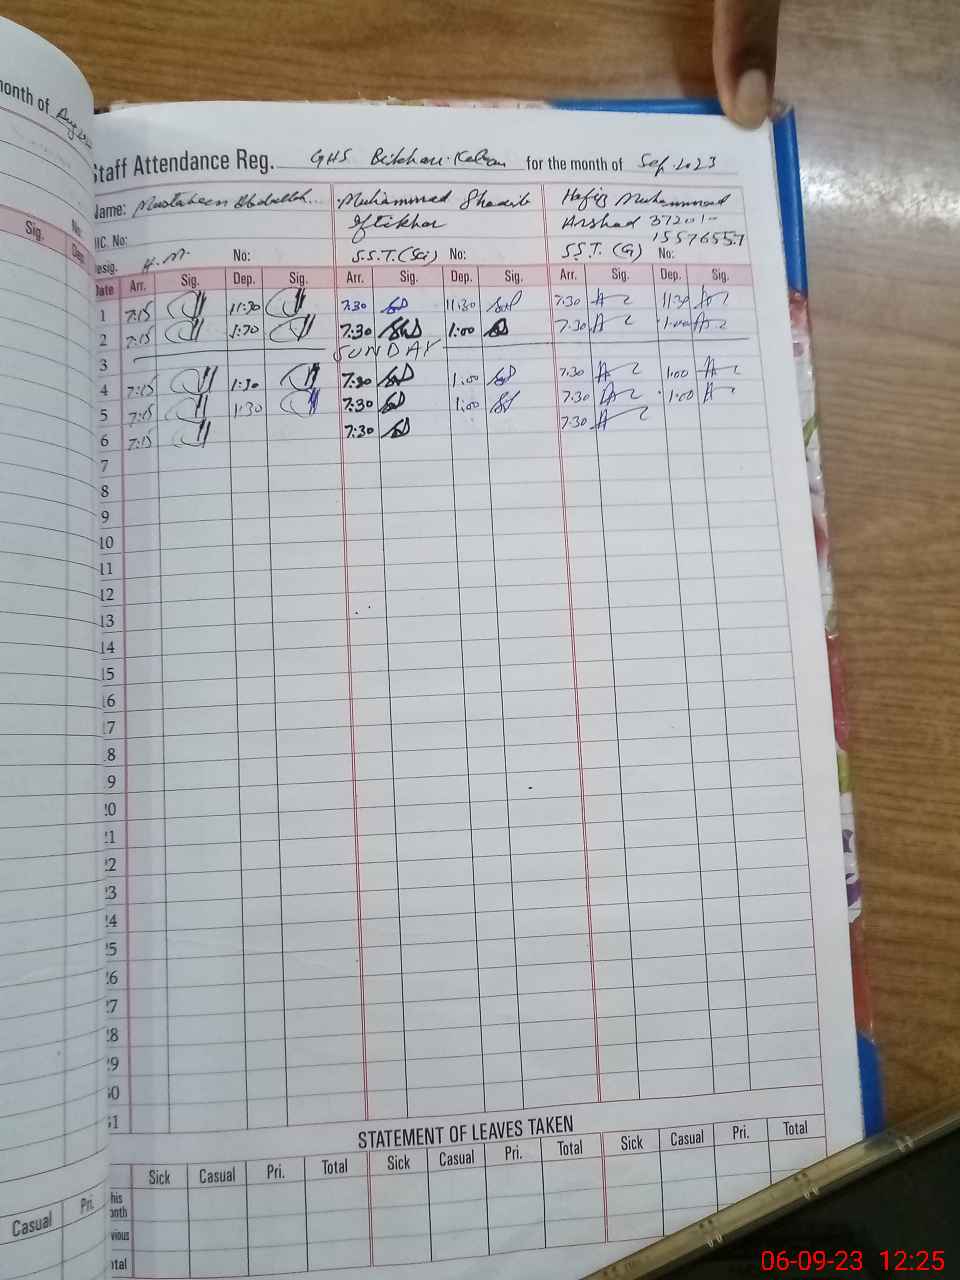 month of Aug
Sig.
No:
Staff Attendance Reg. GHS for the month of Sep. 2023
Name: Muhammad Hafiz Muhammad
Iftikhar Arshad 37201-
NIC. No: 1557655
Desig. H.M No: S.S.T.(Sci) No: S.S.T.(G) No:
Date Arr. Sig. Dep. Sig. Arr. Sig. Dep. Sig. Arr. Sig. Dep. Sig.
1 7:15 11:30 7:30 11:30 7:30 11:30
2 7:15 7:30 1:00 7:30 1:00
3 SUNDAY
4 7:15 1:30 7:30 1:00 7:30 1:00
5 7:15 1:30 7:30 1:00 7:30 1:00
6 7:15 7:30 7:30
7
8
9
10
11
12
13
14
15
16
17
18
19
20
21
22
23
24
25
26
27
28
29
30
31
STATEMENT OF LEAVES TAKEN
Sick Casual Pri. Total Sick Casual Pri. Total Sick Casual Pri. Total
This month
Previous
Total
Casual Pri.
06-09-23 12:25